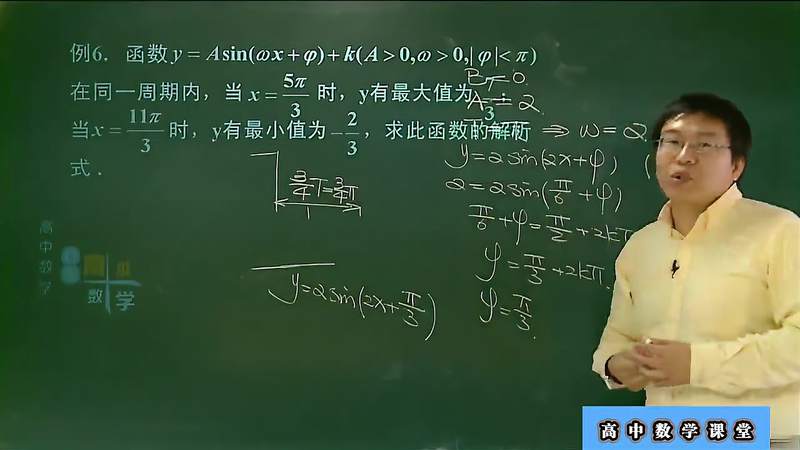 例6. 函数 y = Asin(ωx+φ)+k(A>0,ω>0,|φ|<π)
在同一周期内，当 x = 5π/3 时，y有最大值为
当x = 11π/3 时，y有最小值为 -2/3，求此函数的解析
式．
B = 0.
A = 2
⇒ ω = 2
y=2sin(2x+φ)
2=2sin(π/6+φ)
π/6+φ=π/2+2kπ
φ=π/3+2kπ.
φ=π/3.
3/4T=3/4π
y=2sin(2x+π/3)
高中数学
高中
数学
高中数学课堂